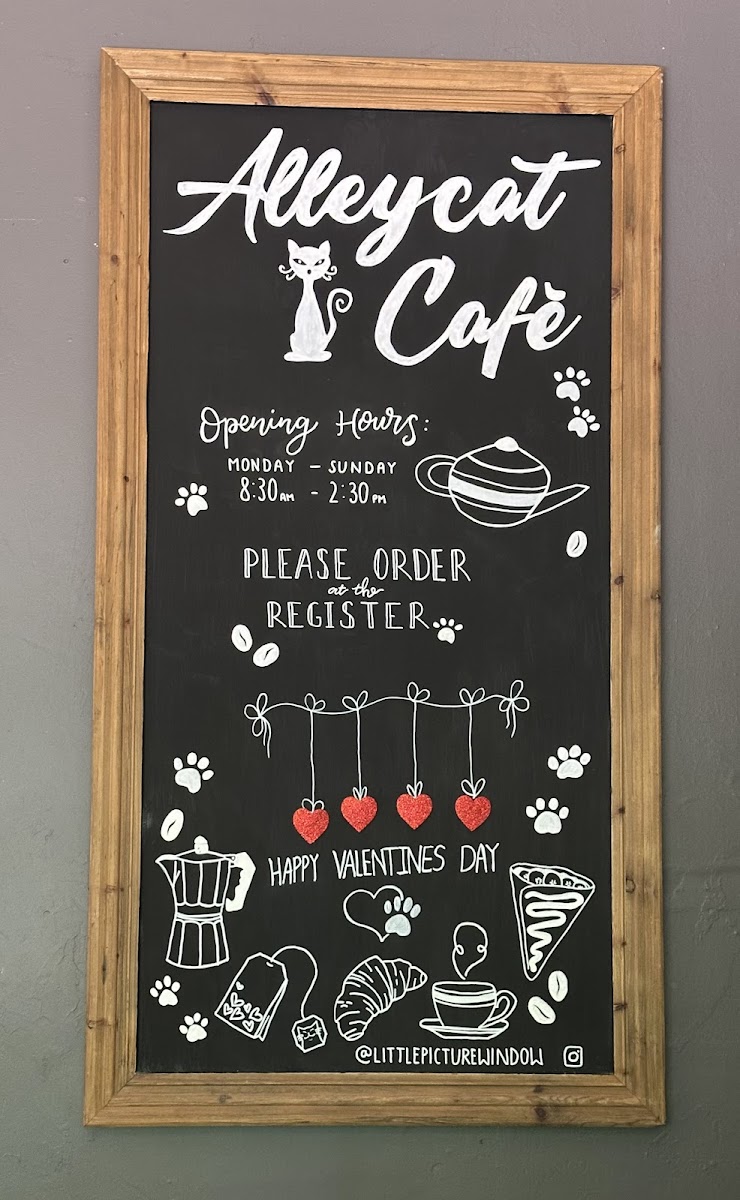 Alleycat
Cafè
Opening Hours:
MONDAY - SUNDAY
8:30AM - 2:30PM
PLEASE ORDER
at the
REGISTER
HAPPY VALENTINES DAY
@LITTLEPICTUREWINDOW